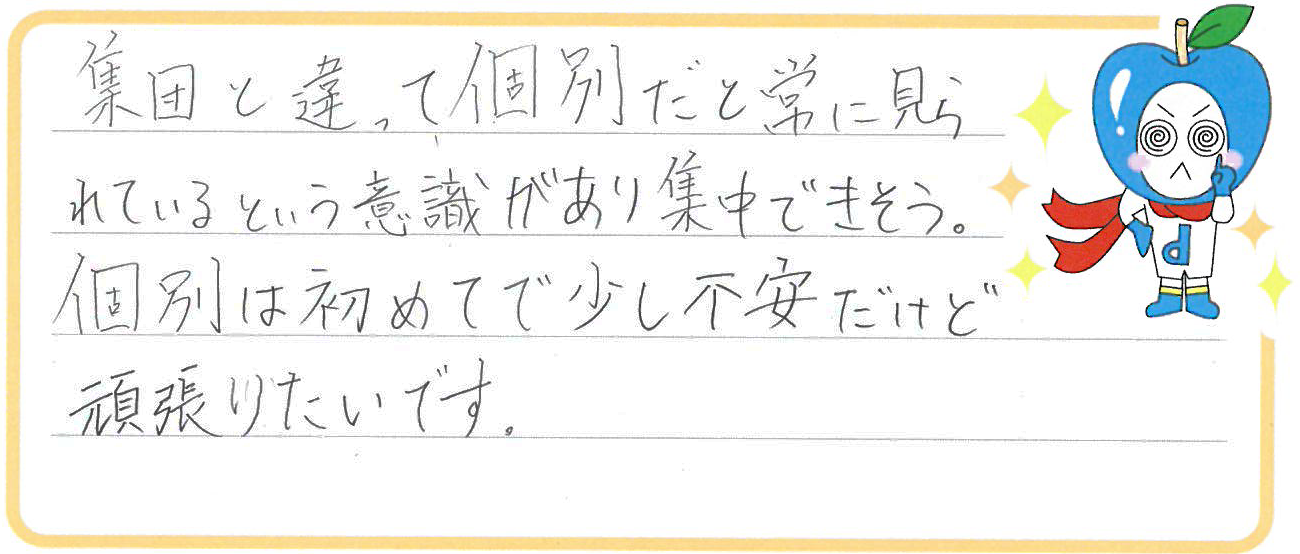 集団と違って個別だと常に見ら
れているという意識があり集中できそう。
個別は初めてで少し不安だけど
頑張りたいです。
d